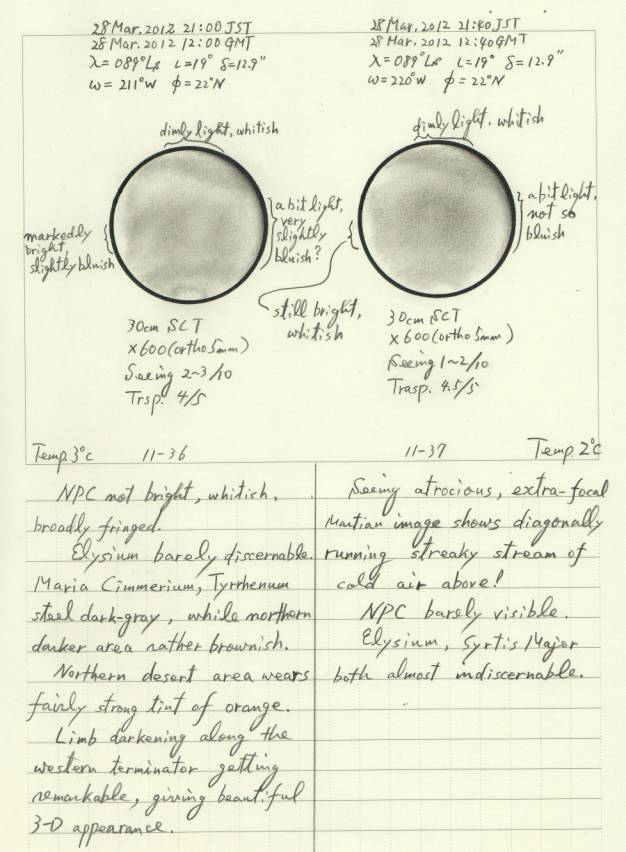 28 Mar. 2012 21:00 JST
28 Mar. 2012 12:00 GMT
λ=089°Ls ι=19° δ=12.9"
ω=211°W φ=22°N
dimly light, whitish
markedly
bright,
slightly bluish
a bit light,
very
slightly
bluish?
30cm SCT
×600 (ortho 5mm)
Seeing 2~3/10
Trsp. 4/5
28 Mar. 2012 21:40 JST
28 Mar. 2012 12:40 GMT
λ=089°Ls ι=19° δ=12.9"
ω=220°W φ=22°N
dimly light, whitish
a bit light,
not so
bluish
still bright,
whitish
30cm SCT
×600 (ortho 5mm)
Seeing 1~2/10
Trasp. 4.5/5
Temp. 3°c 11-36
11-37 Temp. 2°c
NPC not bright, whitish,
broadly fringed.
Elysium barely discernable.
Maria Cimmerium, Tyrrhenum
steel dark-gray, while northern
darker area rather brownish.
Northern desert area wears
fairly strong tint of orange.
Limb darkening along the
western terminator getting
remarkable, giving beautiful
3-D appearance.
Seeing atrocious, extra-focal
Martian image shows diagonally
running streaky stream of
cold air above!
NPC barely visible.
Elysium, Syrtis Major
both almost indiscernable.